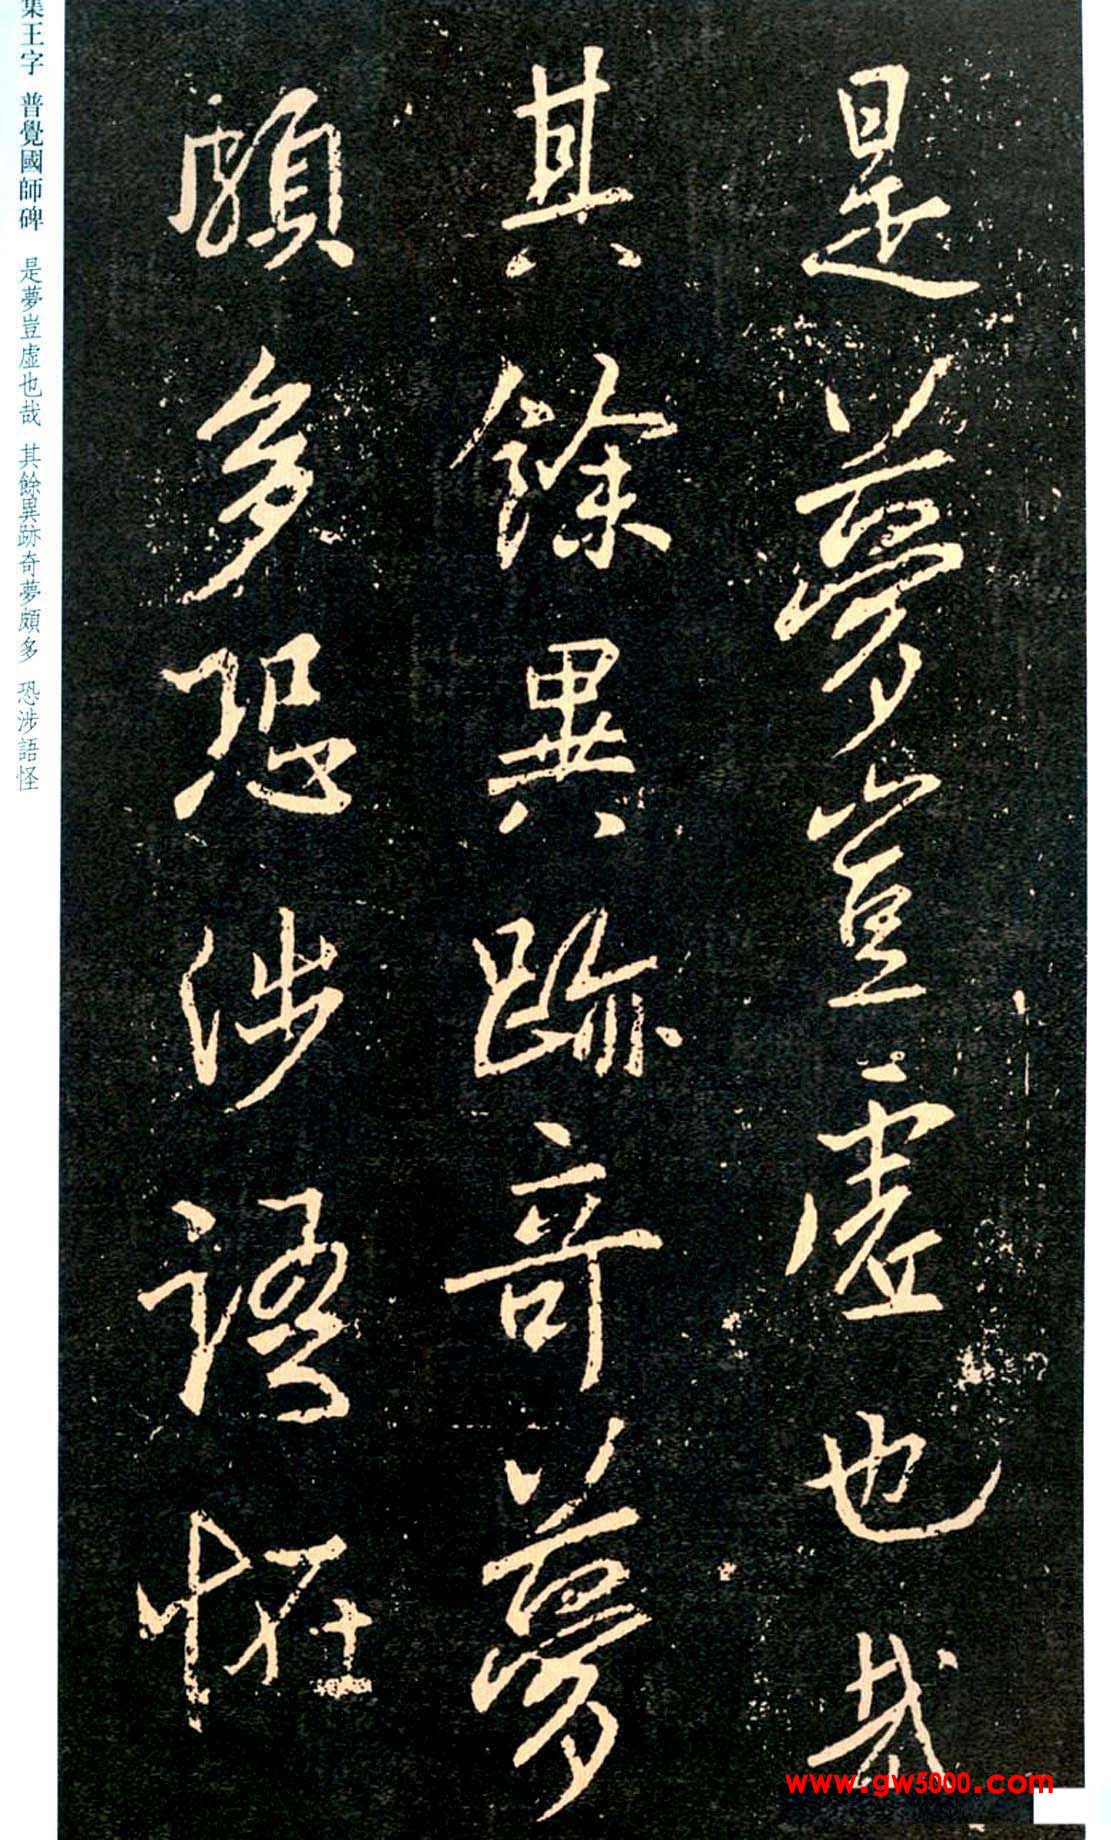 是夢豈虛也哉
其餘異跡奇夢
頗多恐涉語怪
集王字 普覺國師碑 是夢豈虛也哉 其餘異跡奇夢頗多 恐涉語怪
www.gw5000.com